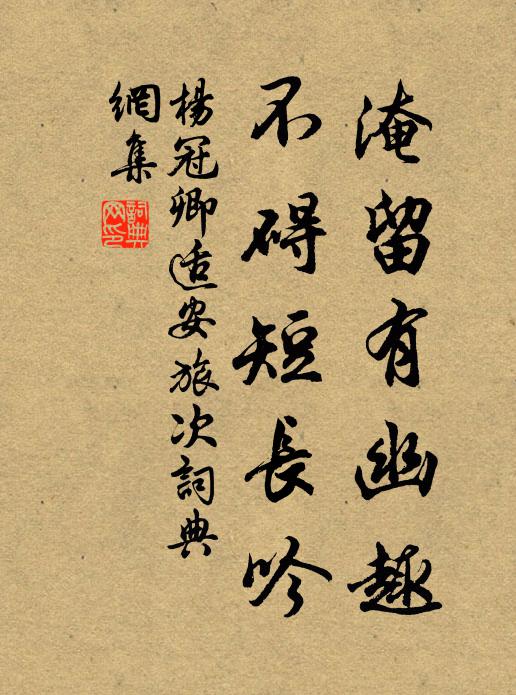 淹留有幽趣
不碍短長吟
楊冠卿适安旅次詞典
網集
詞典
网印